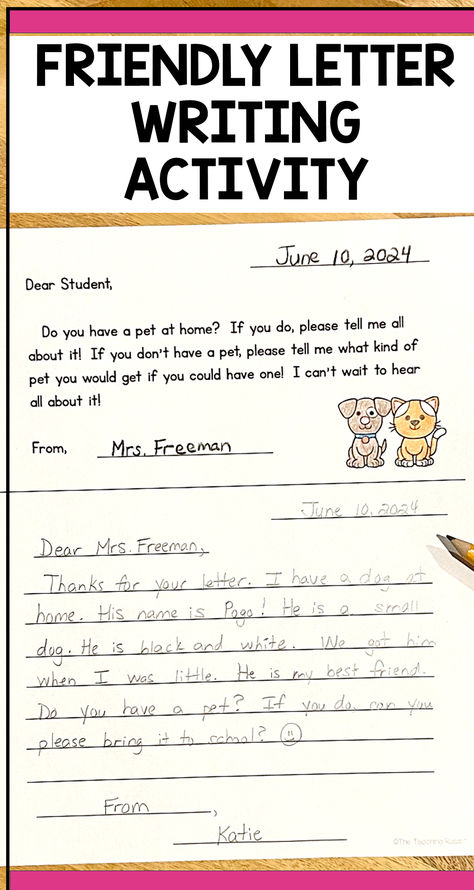 FRIENDLY LETTER
WRITING
ACTIVITY
June 10, 2024
Dear Student,
Do you have a pet at home? If you do, please tell me all
about it! If you don't have a pet, please tell me what kind of
pet you would get if you could have one! I can't wait to hear
all about it!
From, Mrs. Freeman
June 10, 2024
Dear Mrs. Freeman,
Thanks for your letter. I have a dog at
home. His name is Pogo! He is a small
dog. He is black and white. We got him
when I was little. He is my best friend.
Do you have a pet? If you do, can you
please bring it to school? ☺
From,
Katie
©The Teaching